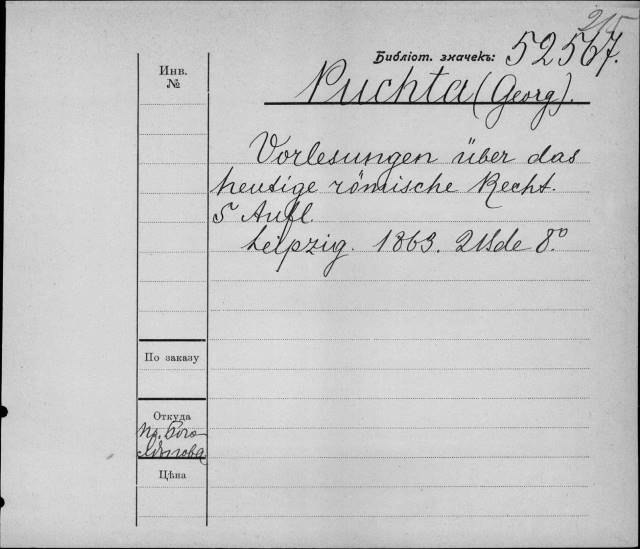 215
Библіот. значекъ: 52567.
Puchta (Georg).
Инв.
№
Vorlesungen über das
heutige römische Recht.
5 Aufl.
Leipzig. 1863. 2 Bde 8º
По заказу
Откуда
Пр. Бого-
лѣпова
Цѣна